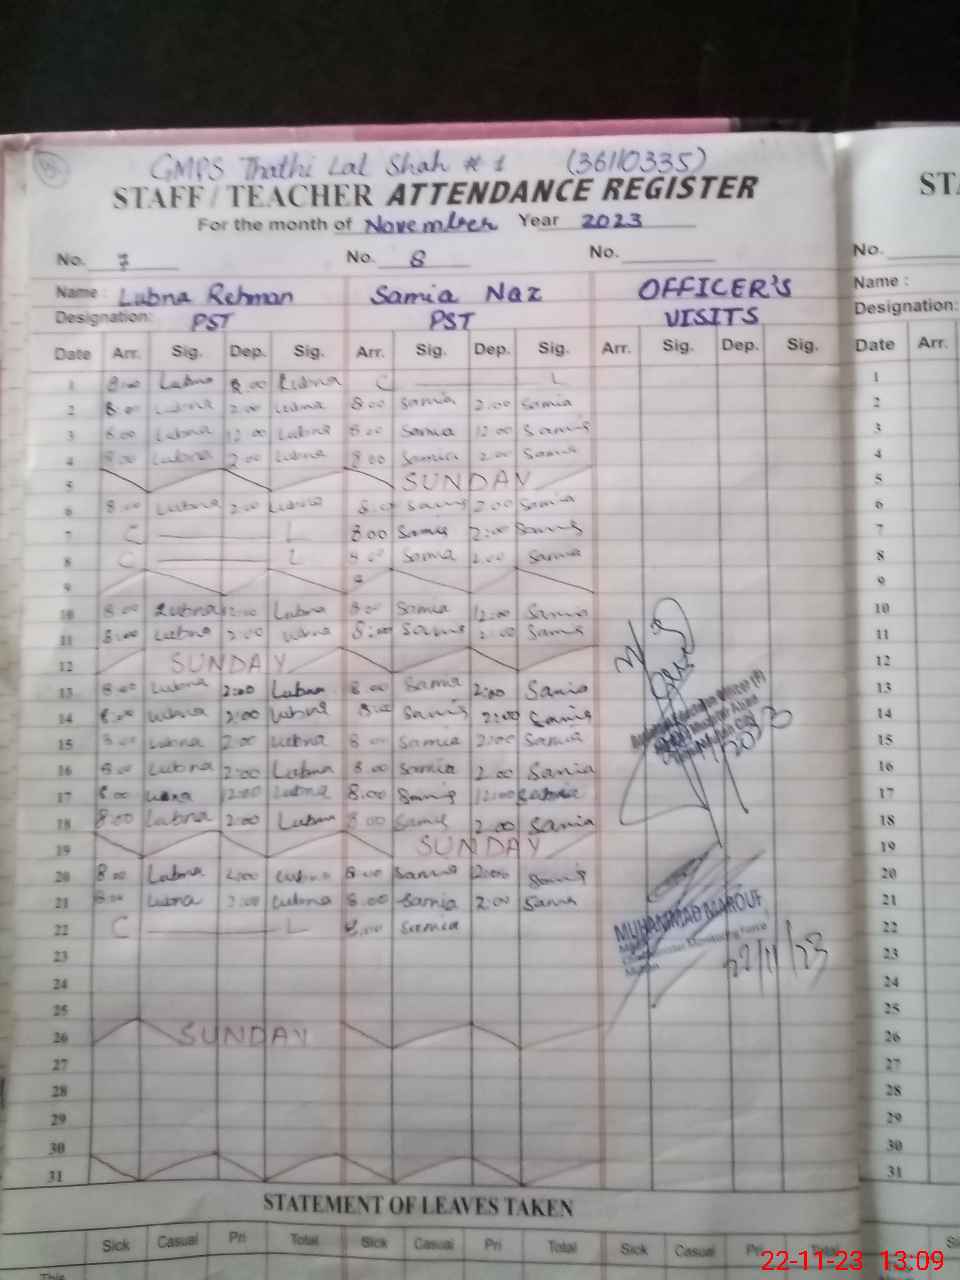 GMPS Thathi Lal Shah # 1 (36110335)
STAFF / TEACHER ATTENDANCE REGISTER
ST
For the month of November Year 2023
No. 7 No. 8 No. No.
Name : Lubna Rehman Samia Naz OFFICER'S Name :
Designation: PST PST VISITS Designation:
Date Arr. Sig. Dep. Sig. Arr. Sig. Dep. Sig. Arr. Sig. Dep. Sig. Date Arr.
1 8:00 Lubna 8.00 Lubna C L 1
2 8:00 Lubna 2:00 Lubna 8:00 Samia 2:00 Samia 2
3 8:00 Lubna 12:00 Lubna 8:00 Samia 12:00 Samia 3
4 8:00 Lubna 2:00 Lubna 8:00 Samia 2:00 Samia 4
5 SUNDAY 5
6 8:00 Lubna 2:00 Lubna 8:00 Samia 2:00 Samia 6
7 C L 8.00 Samia 2:00 Samia 7
8 C L 8:00 Samia 2:00 Samia 8
9 9
10 8:00 Lubna 12:00 Lubna 8:00 Samia 12:00 Samia 10
11 8:00 Lubna 2:00 Lubna 8:00 Samia 2:00 Samia 11
12 SUNDAY 12
13 8:00 Lubna 2:00 Lubna 8:00 Samia 2:00 Samia 13
14 8:00 Lubna 2:00 Lubna 8:00 Samia 2:00 Samia 14
15 8:00 Lubna 2:00 Lubna 8:00 Samia 2:00 Samia 15
16 8:00 Lubna 2:00 Lubna 8.00 Samia 2.00 Samia 16
17 8:00 Lubna 12:00 Lubna 8.00 Samia 12:00 17
18 8:00 Lubna 2:00 Lubna 8:00 Samia 2.00 Samia 18
19 SUNDAY 19
20 8:00 Lubna 2:00 Lubna 8:00 Samia 2:00 Samia 20
21 8:00 Lubna 2:00 Lubna 8.00 Samia 2:00 Samia 21
22 C L 8.00 Samia MUHAMMAD MAROUF 22
23 Monitoring Force 22/11/23 23
24 24
25 25
26 SUNDAY 26
27 27
28 28
29 29
30 30
31 31
STATEMENT OF LEAVES TAKEN
Sick Casual Pri Total Sick Casual Pri Total Sick Casual Pri Total
This
22-11-23 13:09